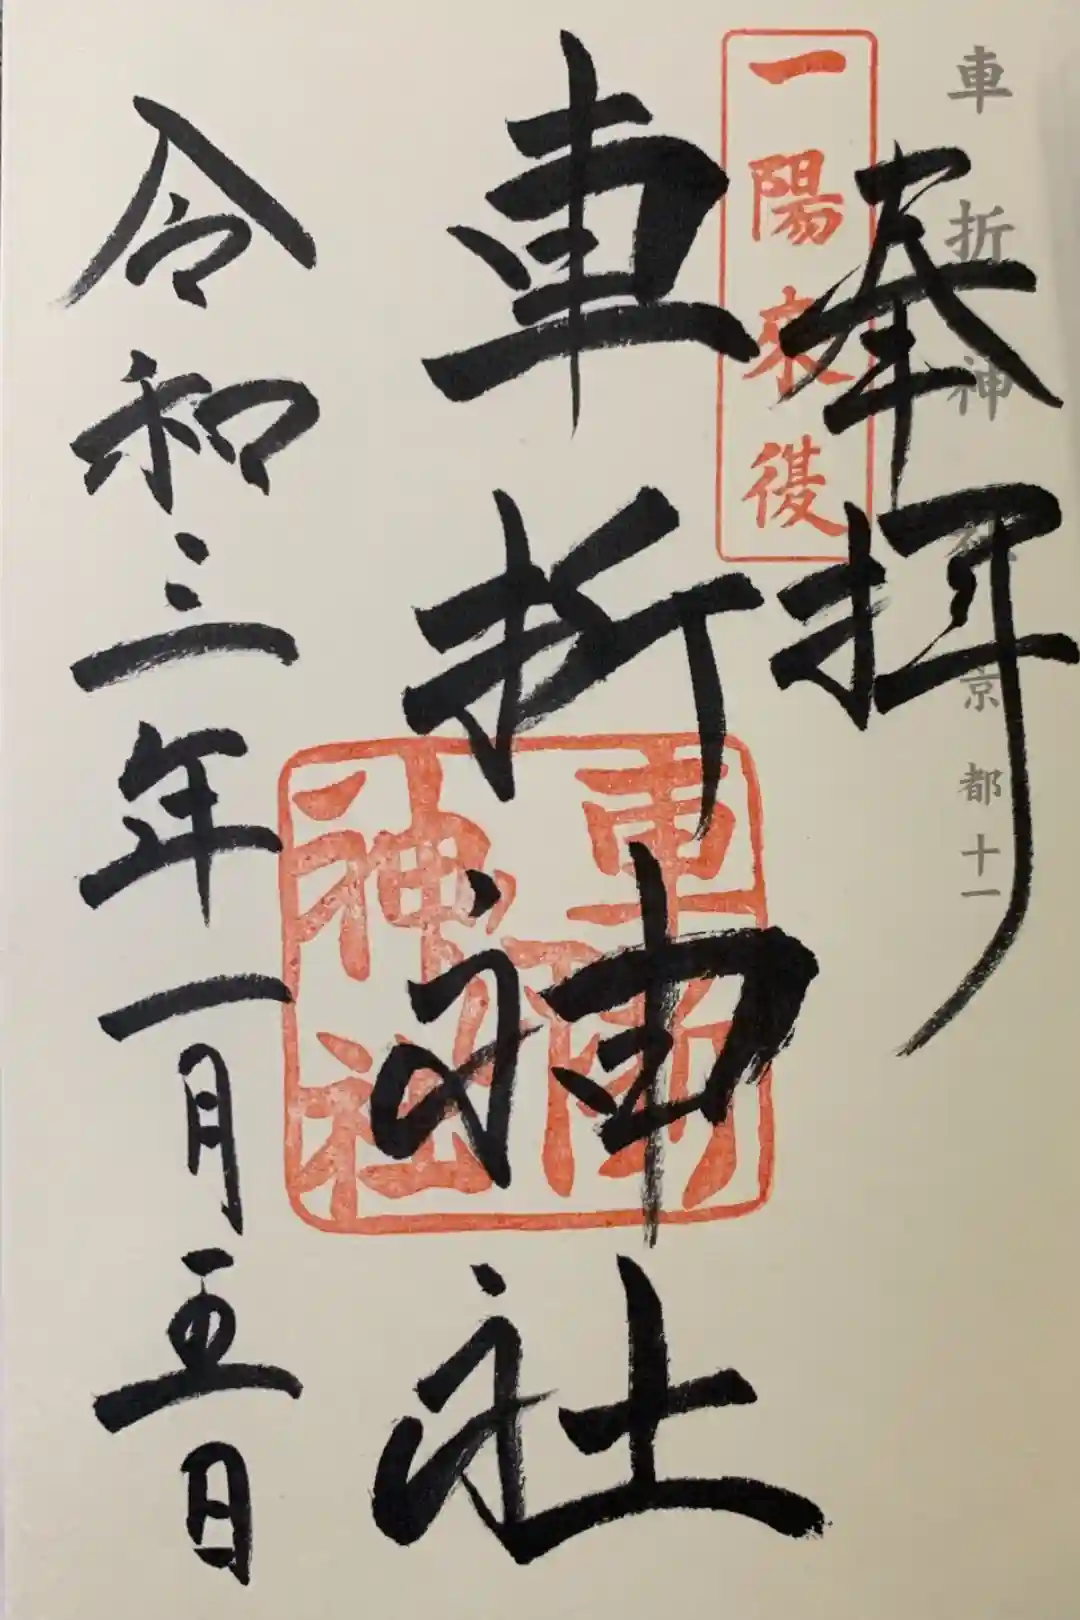 車折神社 京都十一
奉拝
一陽来復
車折神社
車折神社
令和三年一月五日